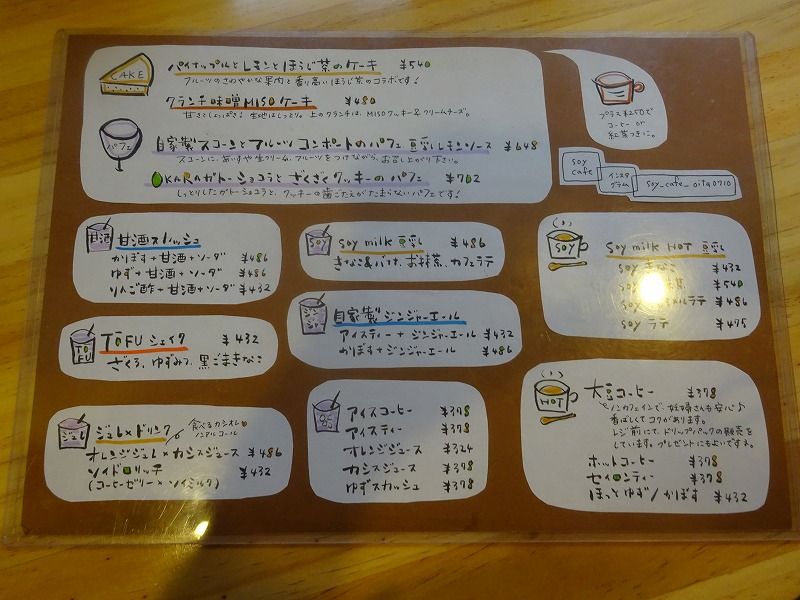 CAKE
パイナップルとレモンとほうじ茶のケーキ ¥540
フルーツのさわやかな果肉と香り高いほうじ茶のコラボです!
クランチ味噌MISOケーキ ¥480
甘さとしょっぱさ! 生地はしっとり。上のクランチは、MISOクッキー&クリームチーズ。
パフェ
自家製スコーンとフルーツコンポートのパフェ 豆乳レモンソース ¥648
スコーンに、あいすや生クリーム、フルーツをつけながら、お召し上がり下さい。
OKARAガトーショコラとざくざくクッキーのパフェ ¥702
しっとりしたガトーショコラと、クッキーの歯ごたえがたまらないパフェです!
プラス¥250で
コーヒー or
紅茶つきに。
soy cafe
インスタグラム
soy_cafe_oita0710
甘酒
甘酒スカッシュ
かぼす+甘酒+ソーダ ¥486
ゆず+甘酒+ソーダ ¥486
りんご酢+甘酒+ソーダ ¥432
SOY
soy milk 豆乳 ¥486
きなこ&バナナ、お抹茶、カフェラテ
SOY
Soy milk HOT 豆乳
soy きなこ ¥432
soy 茶 ¥540
soy ラテ ¥486
soy ラテ ¥475
TOFU
TOFU シェイク ¥432
ざくろ、ゆずみつ、黒ごまきなこ
ジンジャー
自家製ジンジャーエール
アイスティー+ジンジャーエール ¥432
かぼす+ジンジャーエール ¥486
ジュレ
ジュレ×ドリンク
食べるカシオレ
ノンアルコール
オレンジジュレ×カシスジュース ¥486
ソイドロリッチ ¥432
(コーヒーゼリー×ソイミルク)
アイスコーヒー ¥378
アイスティー ¥378
オレンジジュース ¥324
カシスジュース ¥378
ゆずスカッシュ ¥378
HOT
大豆コーヒー ¥378
ノンカフェインで、妊婦さんも安心♪
香ばしくてコクがあります。
レジ前にて、ドリップパックの販売を
しています。プレゼントにもよいですネ。
ホットコーヒー ¥378
セイロンティー ¥378
ほっとゆず/かぼす ¥432